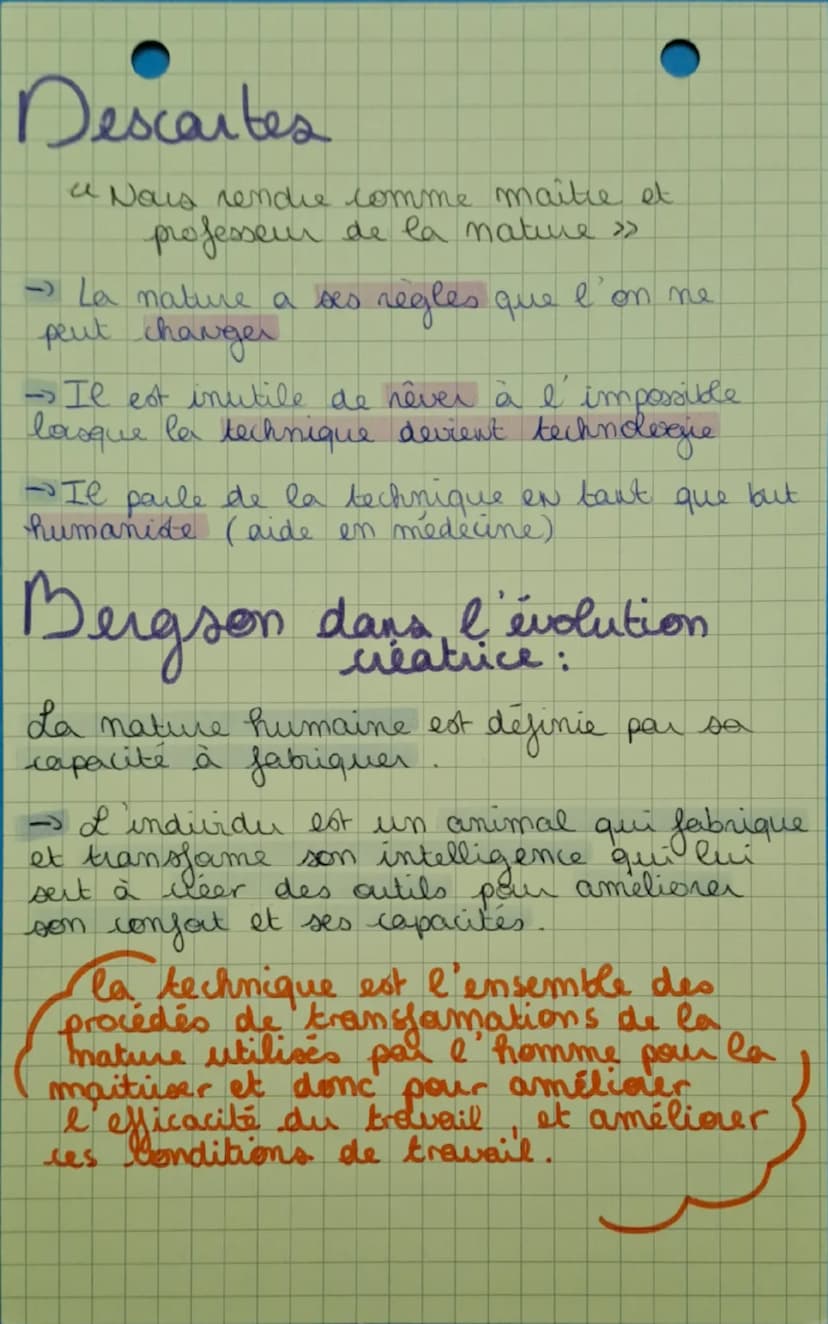 Descartes
« Nous rendre comme maître et
professeur de la nature »
→ La nature a ses règles que l'on ne
peut changer
→ Il est inutile de rêver à l'impossible
lorsque la technique devient technologie
→ Il parle de la technique en tant que but
humaniste (aide en médecine)
Bergson dans l'évolution
créatrice :
La nature humaine est définie par sa
capacité à fabriquer.
→ L'individu est un animal qui fabrique
et transforme son intelligence qui lui
sert à créer des outils pour améliorer
son confort et ses capacités.
la technique est l'ensemble des
procédés de transformations de la
nature utilisés par l'homme pour la
maitriser et donc pour améliorer
l'efficacité du travail, et améliorer
ces conditions de travail.